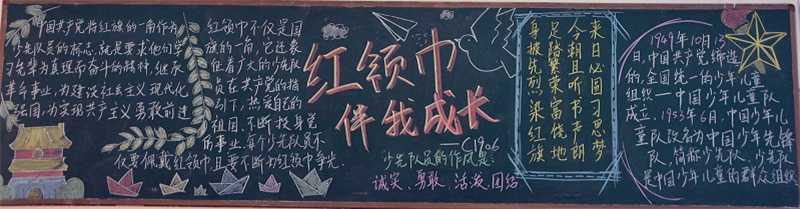 中国共产党将红旗的一角作为
少先队员的标志,就是要求他们学
习先辈为真理而奋斗的精神,继承
革命事业,为建设社会主义现代化
强国,为实现共产主义勇敢前进
红领巾不仅是国
旗的一角,它还表
征着广大的少先队
员在共产党的指
引下,热爱自己的
祖国,不断投身党
的事业,每个少先队员不
仅要佩戴红领巾且要不断为红领巾争光.
红领巾
伴我成长
——C1906
少先队员的作风是:
诚实、勇敢、活泼、团结
来日必圆习思梦
今朝且听书声朗
足踏繁荣富饶地
身披先烈染红旗
1949年10月13
日,中国共产党缔造
的,全国统一的少年儿童
组织——中国少年儿童队
成立.1953年6月,中国少年儿
童队改名为中国少年先锋
队,简称少先队.少先队
是中国少年儿童的群众组织